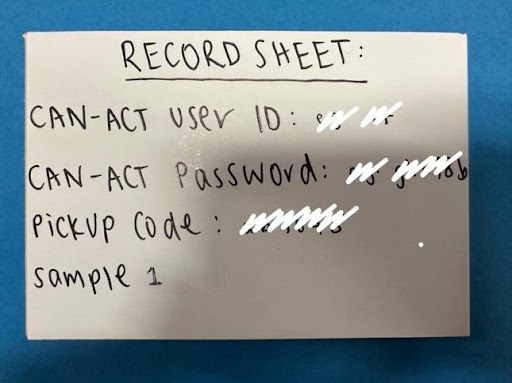 RECORD SHEET:
CAN-ACT User ID:
CAN-ACT Password:
Pickup Code:
Sample 1